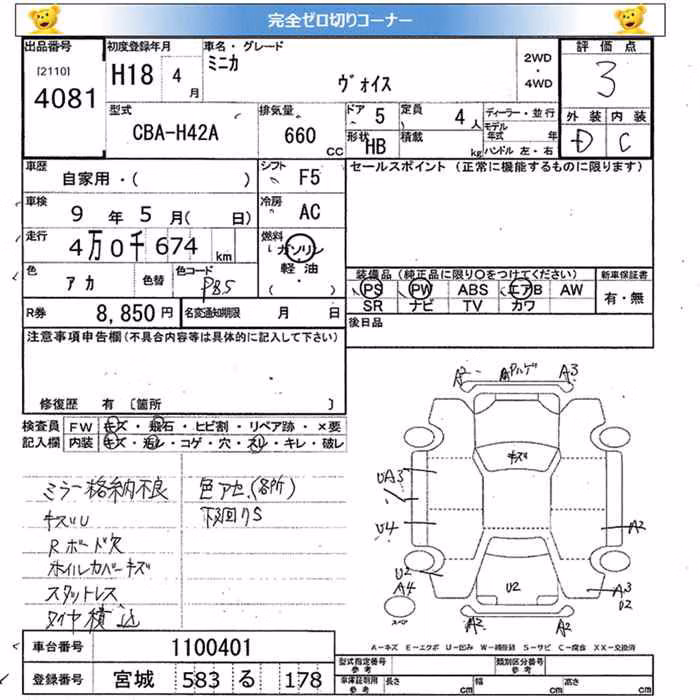 完全ゼロ切りコーナー
出品番号 [2110] 4081
初度登録年月 H18 4月
車名・グレード ミニカ ヴォイス
2WD ・ 4WD
評価点 3
外装 内装
D C
型式 CBA-H42A
排気量 660 CC
ドア 5
形状 HB
定員 4人
積載 kg
ディーラー・並行
モデル年式 年
ハンドル 左・右
車歴 自家用・( )
シフト F5
セールスポイント (正常に機能するものに限ります)
車検 9年5月( 日)
冷房 AC
走行 4万0千674 km
燃料 ガソリン ・ 軽油 ・ ( )
色 アカ 色替
色コード P85
装備品 (純正品に限り○をつけてください)
PS PW ABS エアB AW
SR ナビ TV カワ
新車保証書 有・無
R券 8,850円
名変通知期限 月 日
後日品
注意事項申告欄(不具合内容等は具体的に記入して下さい)
修復歴 有 〔箇所 〕
検査員記入欄
FW キズ・飛石・ヒビ割・リペア跡・×要
内装 キズ・汚レ・コゲ・穴・スレ・キレ・破レ
ミラー格納不良 色アセ(各所)
キズU 下廻りS
Rボード欠
ホイルカバーキズ
スタットレス
タイヤ積込
A2 A3
キズ
UA3
U4 A2
U2
A4 U2 A3
U2
A2 A2
車台番号 1100401
登録番号 宮城 583 る 178
A-キズ E-エクボ U-凹み W-補修跡 S-サビ C-腐食 XX-交換済
型式指定番号 参考
類別区分番号 参考
車庫証明用 参考 長さ cm 幅 cm 高さ cm